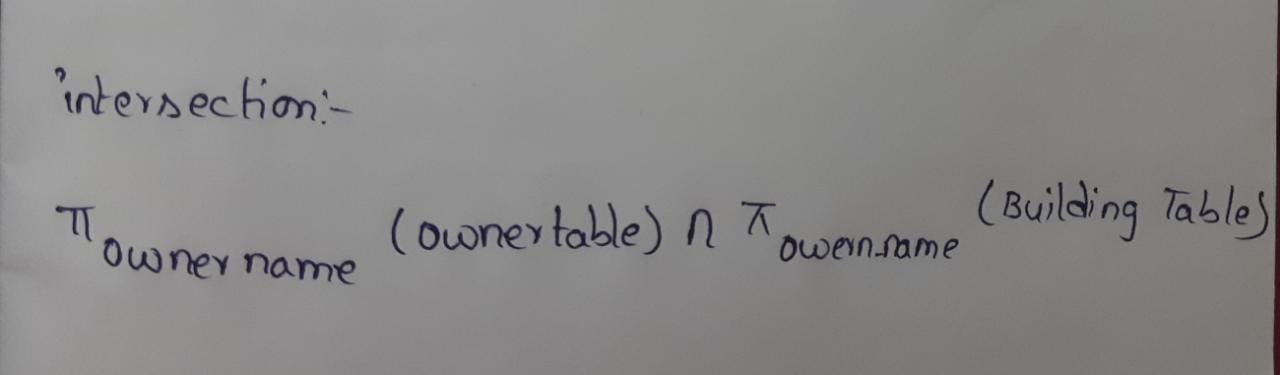 intersection:-
π owner name (ownertable) ∩ π owern.name (Building Table)